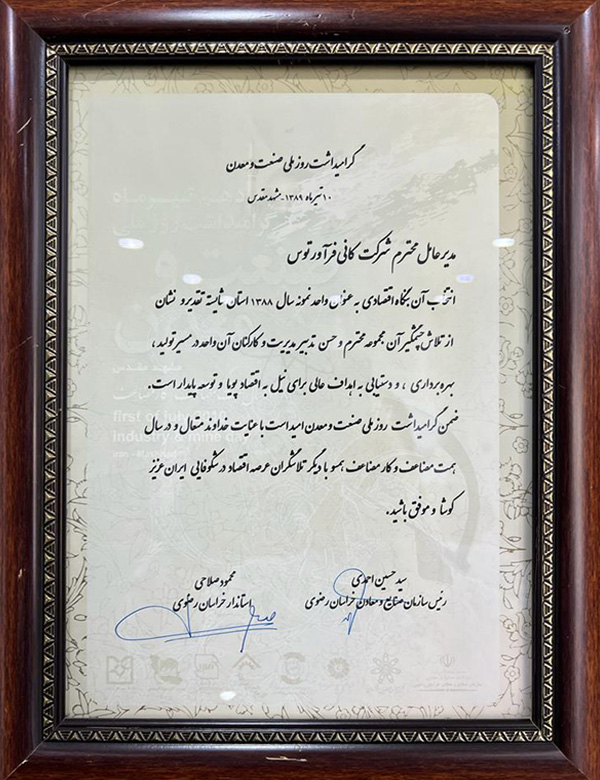 گرامیداشت روز ملی صنعت و معدن
۱۰ تیرماه ۱۳۸۹ - مشهد مقدس
مدیر عامل محترم شرکت کانی فرآور توس
انتخاب آن بنگاه اقتصادی به عنوان واحد نمونه سال ۱۳۸۸ استان شایسته تقدیر و نشان
از تلاش چشمگیر آن مجموعه محترم و حسن تدبیر مدیریت و کارکنان آن واحد در مسیر تولید ،
بهره برداری ، و دستیابی به اهداف عالی برای نیل به اقتصاد پویا و توسعه پایدار است.
ضمن گرامیداشت روز ملی صنعت و معدن امید است با عنایت خداوند متعال و در سال
همت مضاعف و کار مضاعف همسو با دیگر تلاشگران عرصه اقتصاد در شکوفایی ایران عزیز
کوشا و موفق باشید.
سید حسین احمدی
رئیس سازمان صنایع و معادن خراسان رضوی
محمود صلاحی
استاندار خراسان رضوی
first of july 2010
industry & mine day